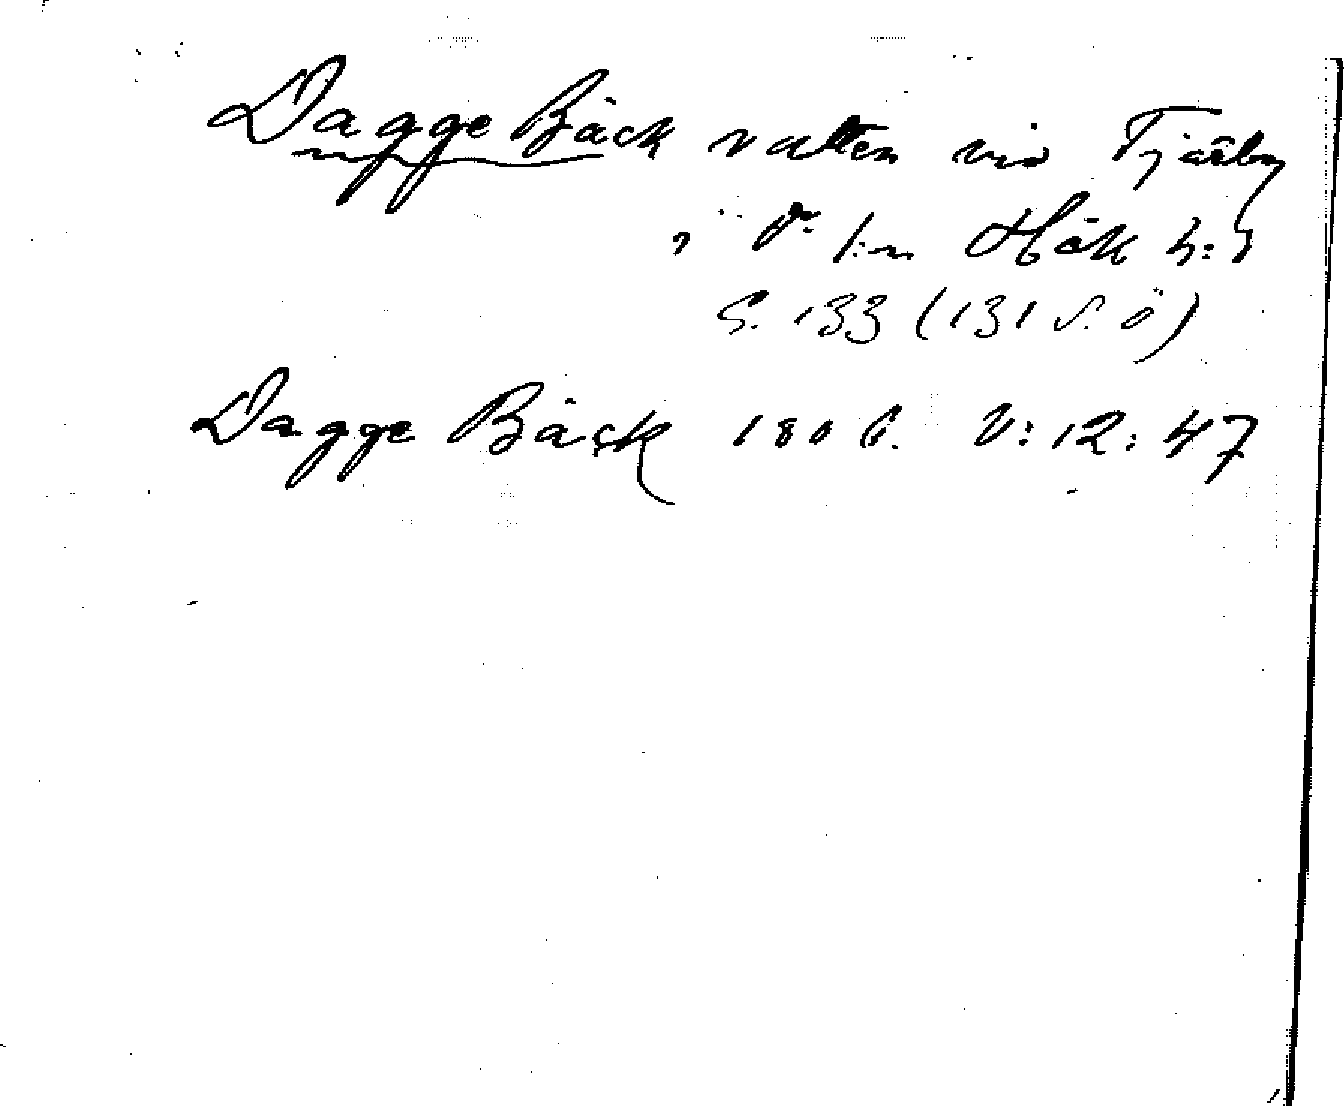 Dagge Bäck vatten vid Tjärby
i D:o l:n Hök h:d
S. 133 (131 S. ö)
Dagge Bäck 1806. V: 12: 47